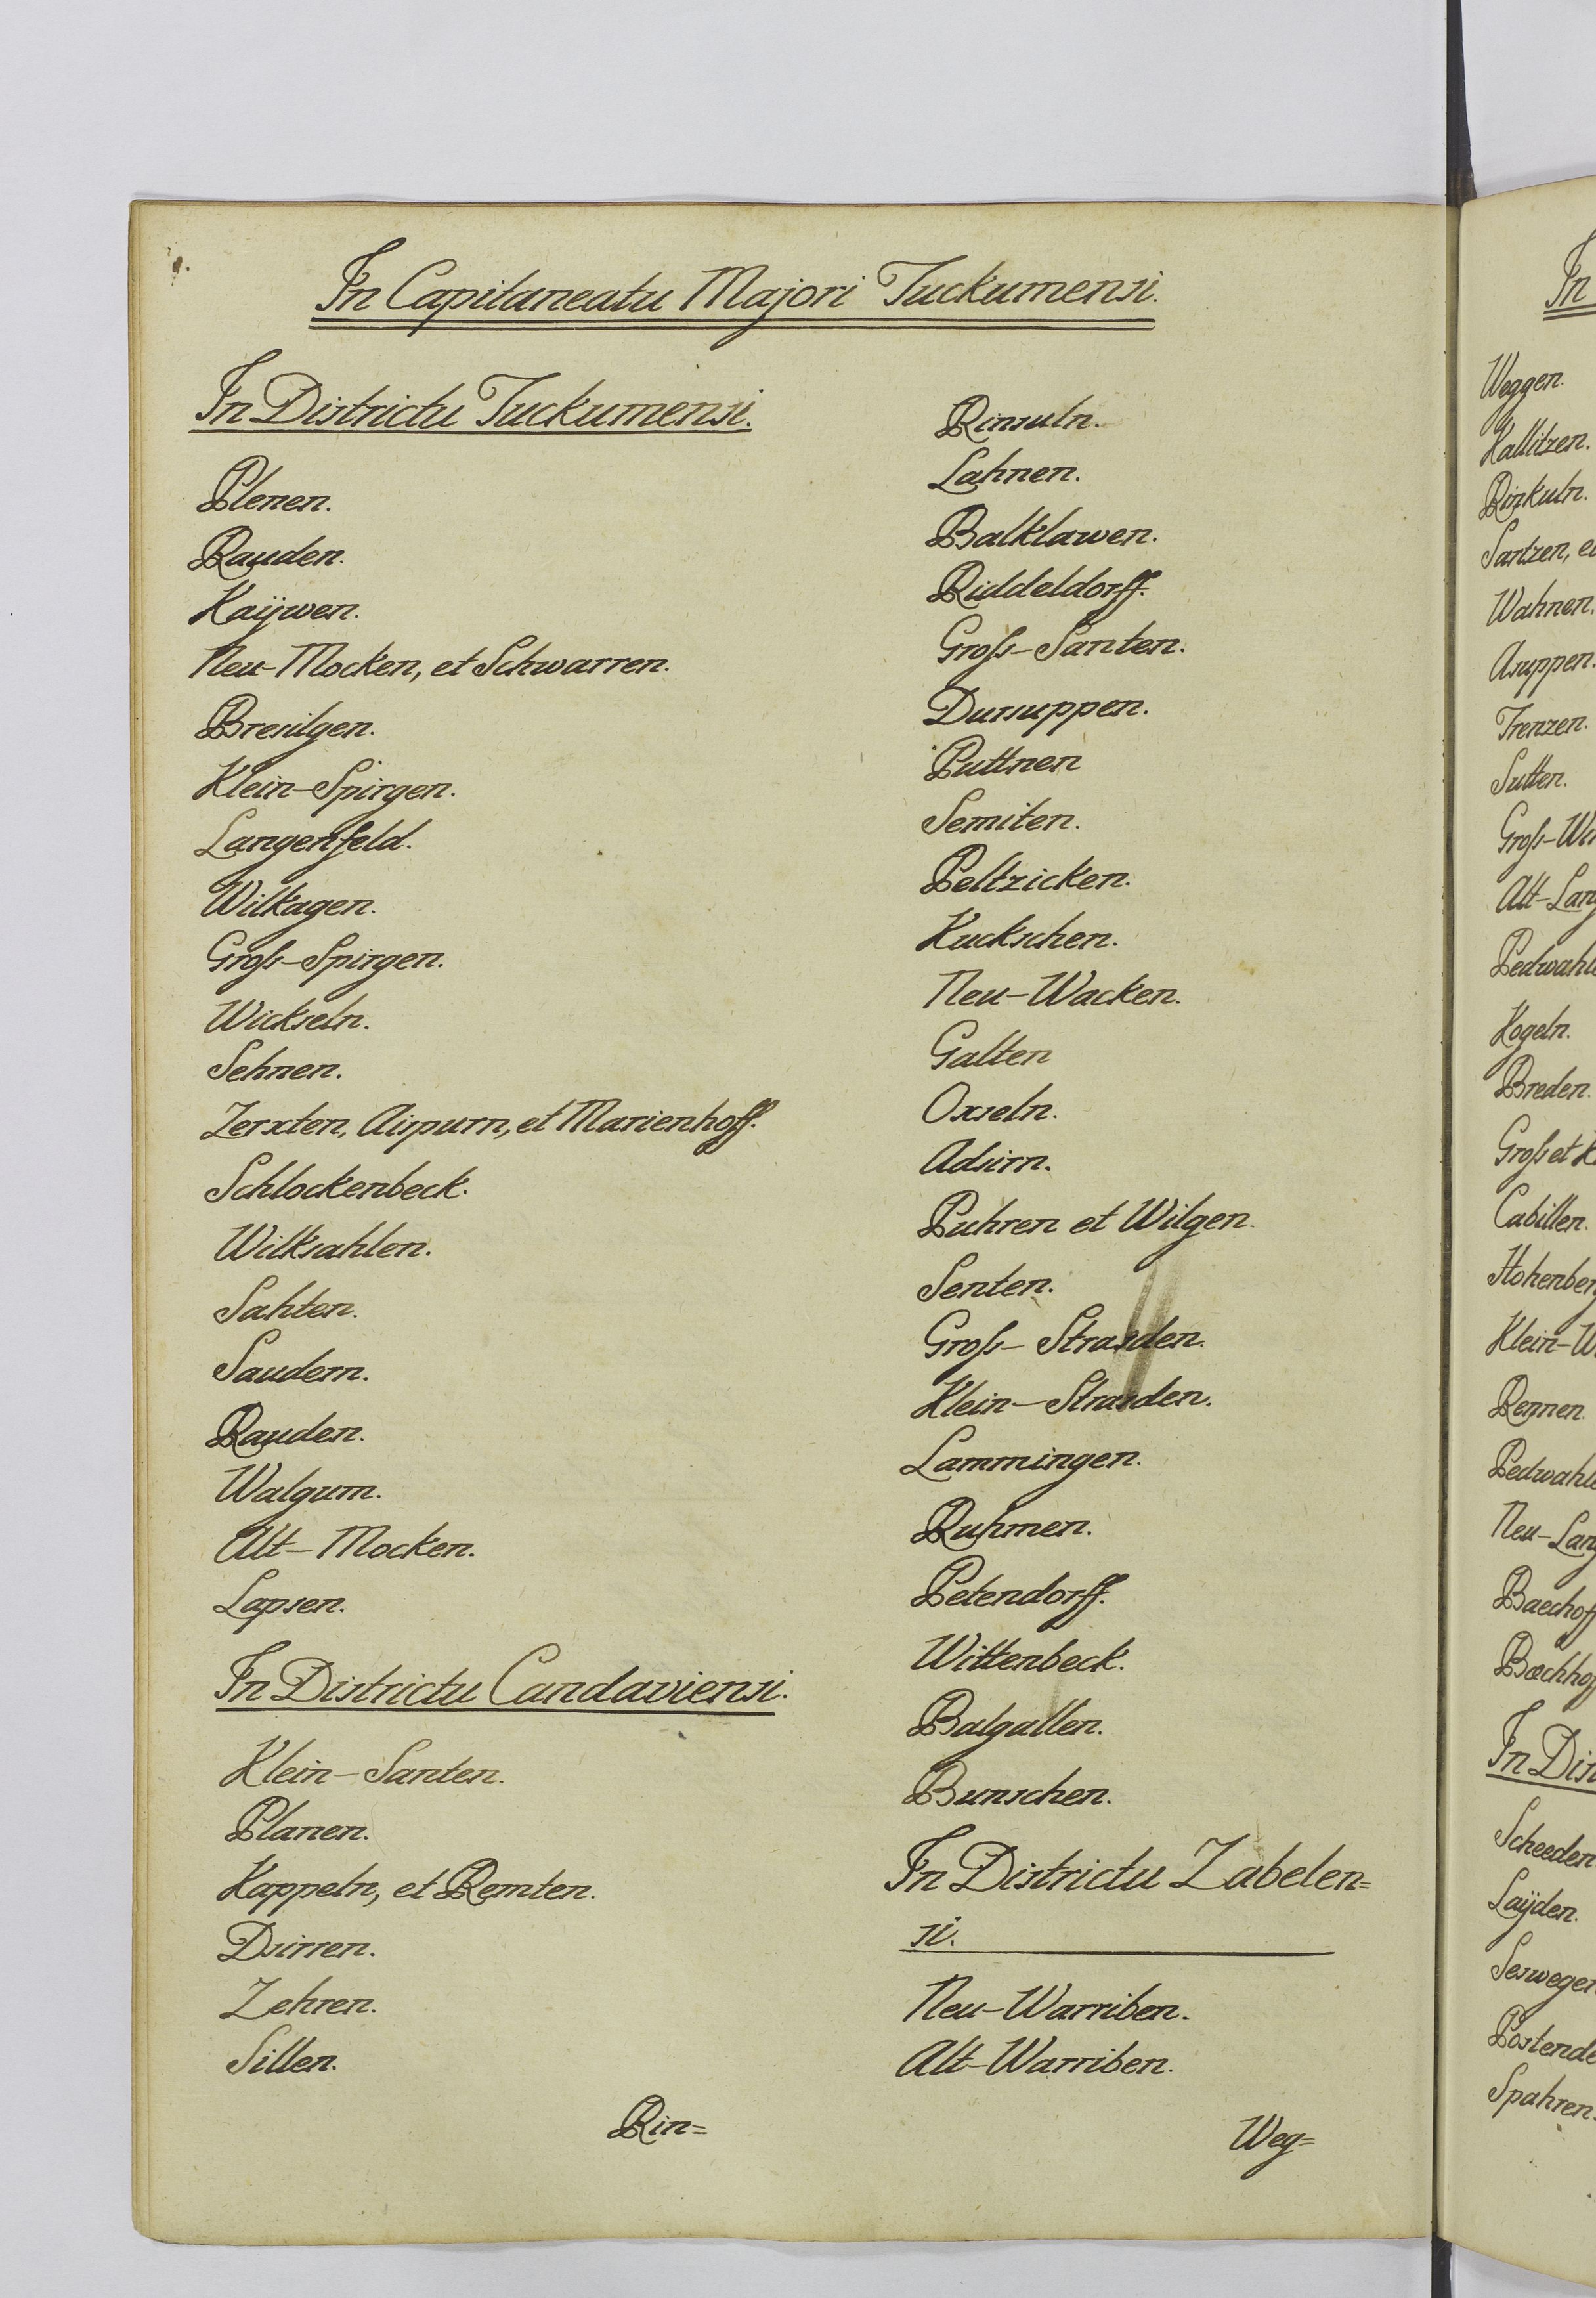 In Capitaneatu Majori Tuckumensi.
In Districtu Tuckumensi.
Plenen.
Rauden.
Kaÿwen.
Neu-Mocken, et Schwarren.
Bresilgen.
Klein-Spirgen.
Langenfeld.
Wilkagen.
Groß-Spirgen.
Wickseln.
Sehnen.
Zerxten, Airpurn, et Marienhoff.
Schlockenbeck.
Wilksahlen.
Sahten.
Saudern.
Rauden.
Walgum.
Alt-Mocken.
Lapsen.
In Districtu Candaviensi.
Klein-Santen.
Planen.
Kappeln, et Remten.
Dsirren.
Zehren.
Sillen.
Rin=
Rinsuln.
Lahnen.
Balklawen.
Riddeldorff.
Groß-Santen.
Dursuppen.
Puttnen
Semiten.
Peltzicken.
Kuckschen.
Neu-Wacken.
Galten
Oxseln.
Adsirn.
Puhren et Wilgen.
Senten.
Groß-Strasden.
Klein-Strasden.
Lammingen.
Ruhmen.
Petendorff.
Wittenbeck.
Balgallen.
Bunschen.
In Districtu Zabelen=
si.
Neu-Warriben.
Alt-Warriben.
Weg=
In
Weggen.
Kallitzen.
Rinkuln.
Santzen,
Wahnen.
Asuppen.
Trenzen.
Sutten.
Groß-
Alt-
Kogeln.
Breden.
Groß et
Cabillen.
Klein-
Rennen.
Neu-
In
Scheeden
Laÿden.
Spahren.